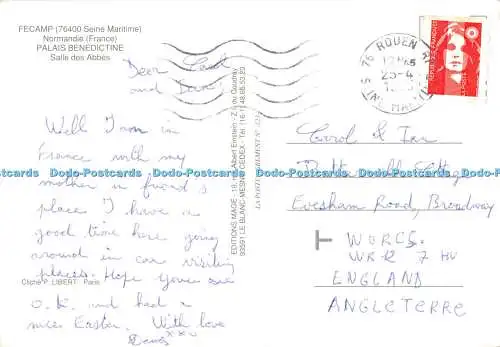 FECAMP (76400 Seine Maritime)
Normandie (France)
PALAIS BENEDICTINE
Salle des Abbés
Dear Carol
and Ian
Well I am in
France with my
mother in friend's
place I have a
good time here going
around in car visiting
places. Hope you are
O.K. and had a
nice Easter. With love
Denis
Cliché P. LIBERT Paris
EDITIONS MAGE - 19, Albert Einstein - Z.I. du Coudray
93591 LE BLANC-MESNIL CEDEX - Tél. (16-1) 48.65.53.23
LA POSTE AGREMENT N°
76 ROUEN
23-4
SEINE MARITIME
Carol & Ian
Cottage
Evesham Road, Broadway
WORCS.
WR12 7 HU
ENGLAND
ANGLETERRE
Dodo-Postcards Dodo-Postcards Dodo-Postcards Dodo-Postcards Dodo-Postcards Dodo-Postcards